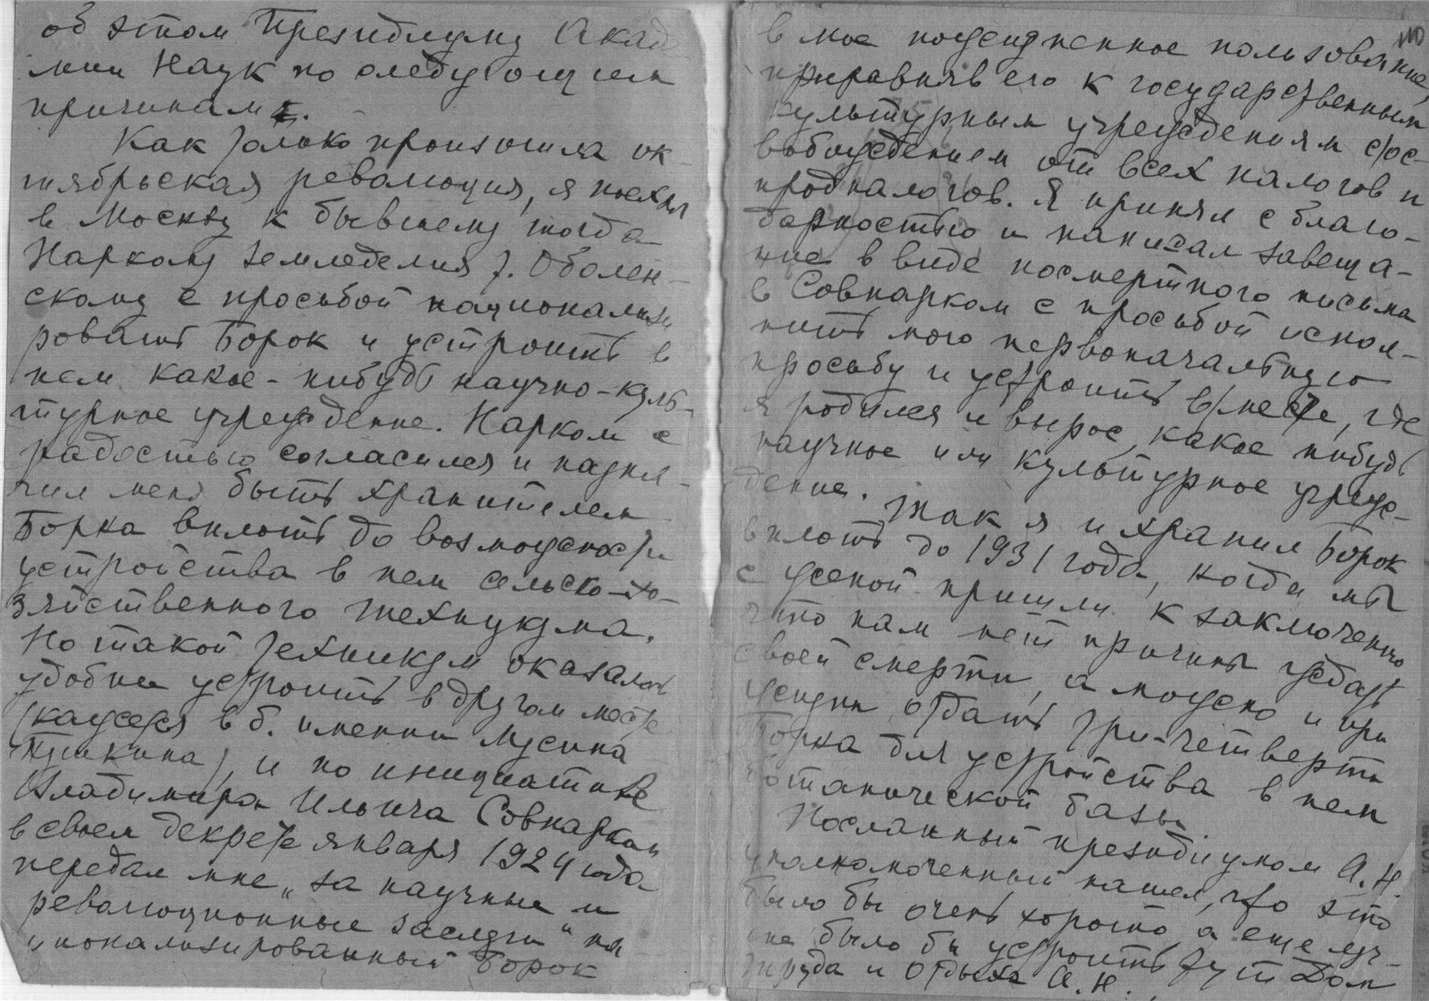 об этом Президиуму Акад
мии Наук по следующим
причинам.
Как только произошла ок-
тябрьская революция, я поехал
в Москву к бывшему тогда
Наркому Земледелия т. Оболен-
скому с просьбой национализи
ровать Борок и устроить в
нем какое-нибудь научно-куль-
турное учреждение. Нарком с
радостью согласился и назна-
чил меня быть хранителем
Борка вплоть до возможности
устройства в нем сельско-хо-
зяйственного техникума.
Но такой техникум оказалось
удобнее устроить в другом месте
(кажется в б. имении Мусина
Пушкина), и по инициативе
Владимира Ильича Совнарком
в своем декрете января 1924 года
передал мне „за научные и
революционные заслуги" на-
ционализированный Борок
110
в мое пожизненное пользование,
приравняв его к государственным
культурным учреждениям с ос-
вобождением от всех налогов и
продналогов. Я принял с благо-
дарностью и написал завеща-
ние в виде посмертного письма
в Совнарком с просьбой испол-
нить мою первоначальную
просьбу и устроить в месте, где
я родился и вырос, какое нибудь
научное или культурное учреж-
дение. Так я и хранил Борок
вплоть до 1931 года, когда мы
с женой пришли к заключению
что нам нет причины ждать
своей смерти, а можно и при
жизни отдать три-четверти
Борка для устройства в нем
ботанической базы
Посланный президиумом А.Н.
уполномоченный нашел, что это
было бы очень хорошо, а еще луч-
ше было бы устроить тут Дом
труда и отдыха А.Н.